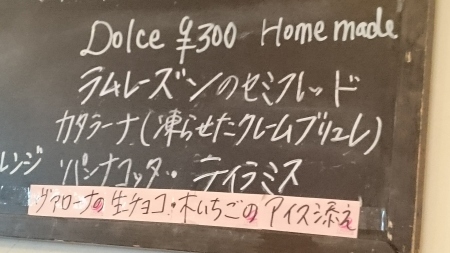 Dolce ¥300 Home made
ラムレーズンのセミフレッド
カタラーナ(凍らせたクレームブリュレ)
レンジ パンナコッタ・ティラミス
ヴァローナの生チョコ・木いちごのアイス添え